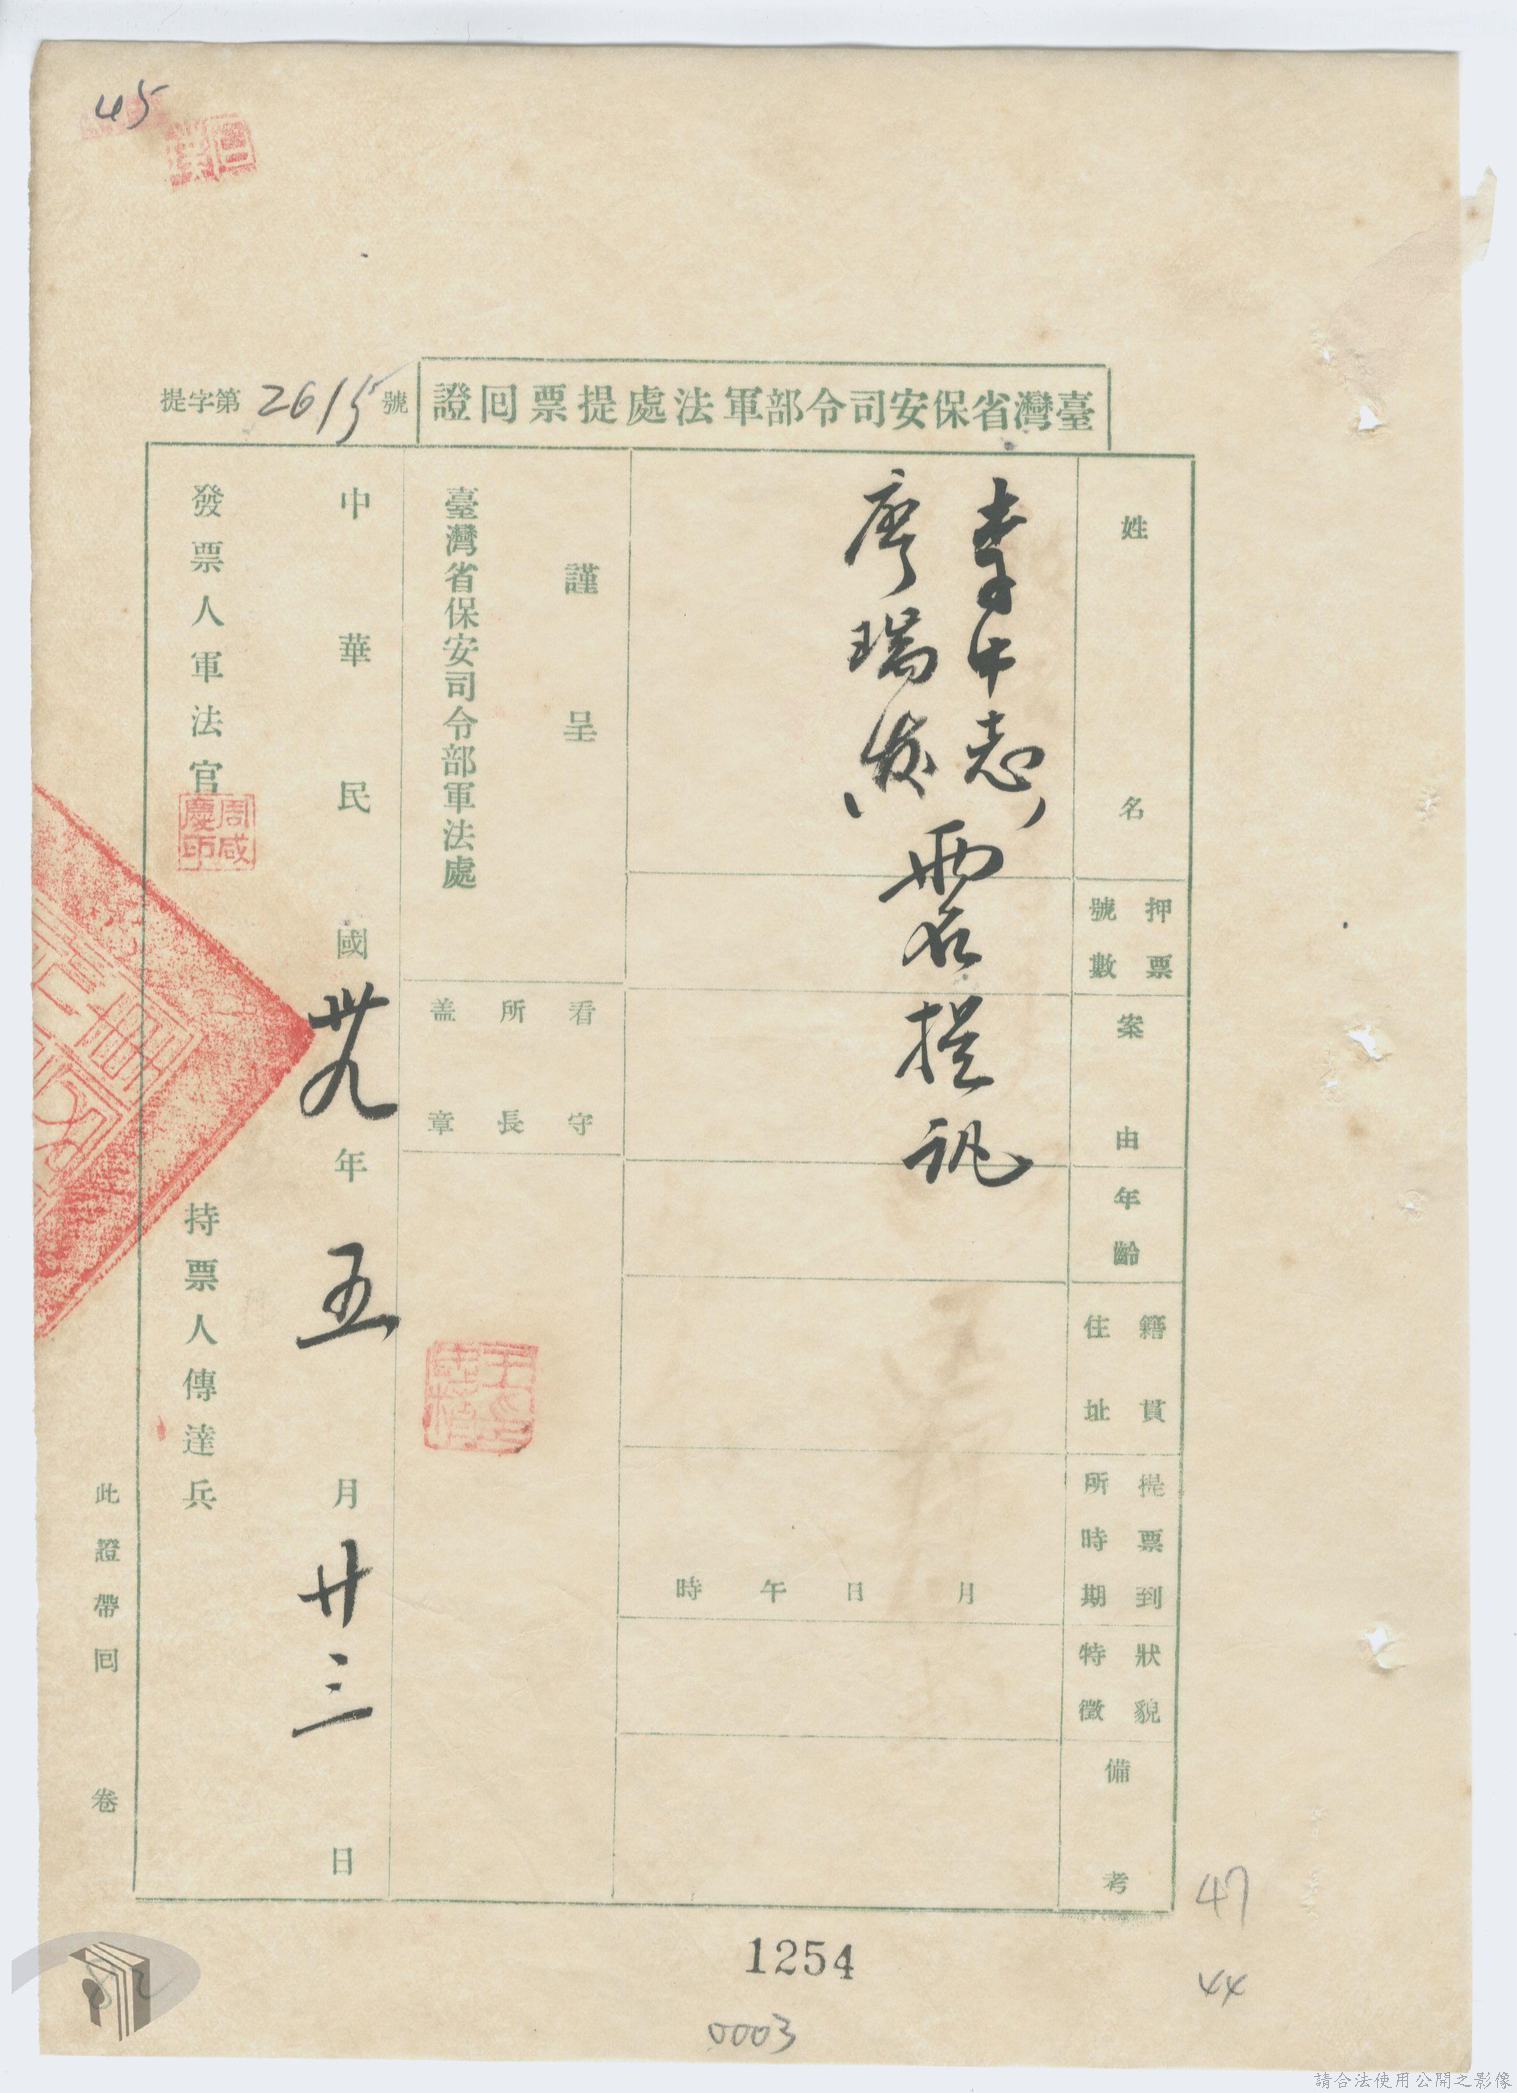 45
臺灣省保安司令部軍法處提票回證
提字第2615號
姓名
押票號數
案由
年齡
籍貫住址
提票到所時期
狀貌特徵
備考
李中志
廖瑞发
兩名提訊
月 日 午 時
謹呈
臺灣省保安司令部軍法處
看守所長盖章
中華民國卅九年五月廿三日
發票人軍法官
周咸慶印
持票人傳達兵
此證帶回 卷
47
44
1254
0003
請合法使用公開之影像